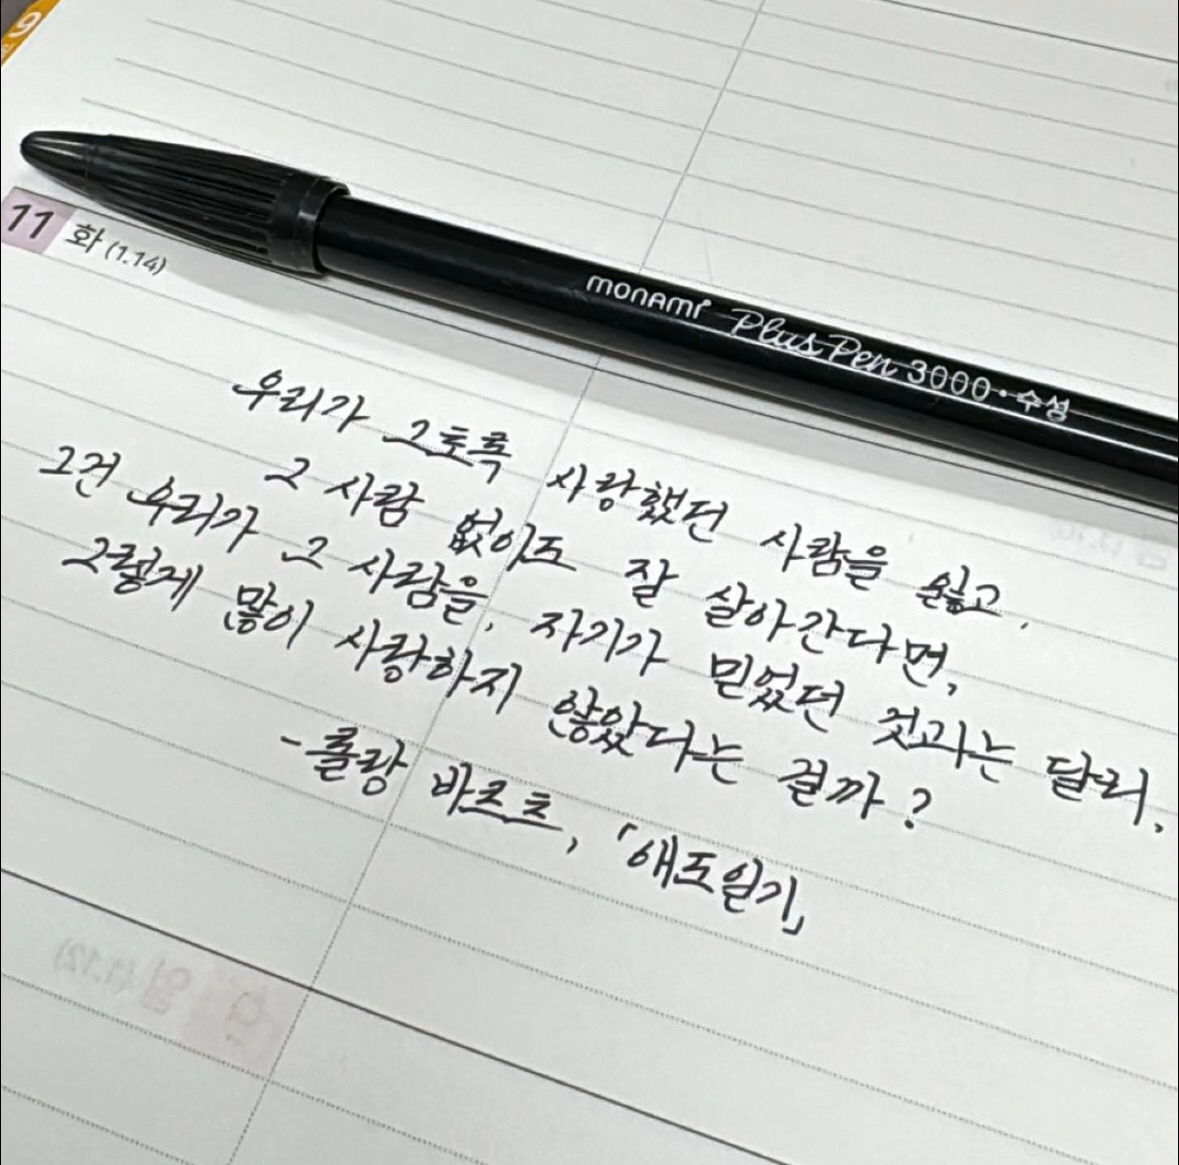 9
monami Plus Pen 3000·수성
11 화 (1.14)
우리가 그토록 사랑했던 사람을 잃고,
그 사람 없이도 잘 살아간다면,
그건 우리가 그 사람을, 자기가 믿었던 것과는 달리,
그렇게 많이 사랑하지 않았다는 걸까?
-롤랑 바르트, 「애도일기」